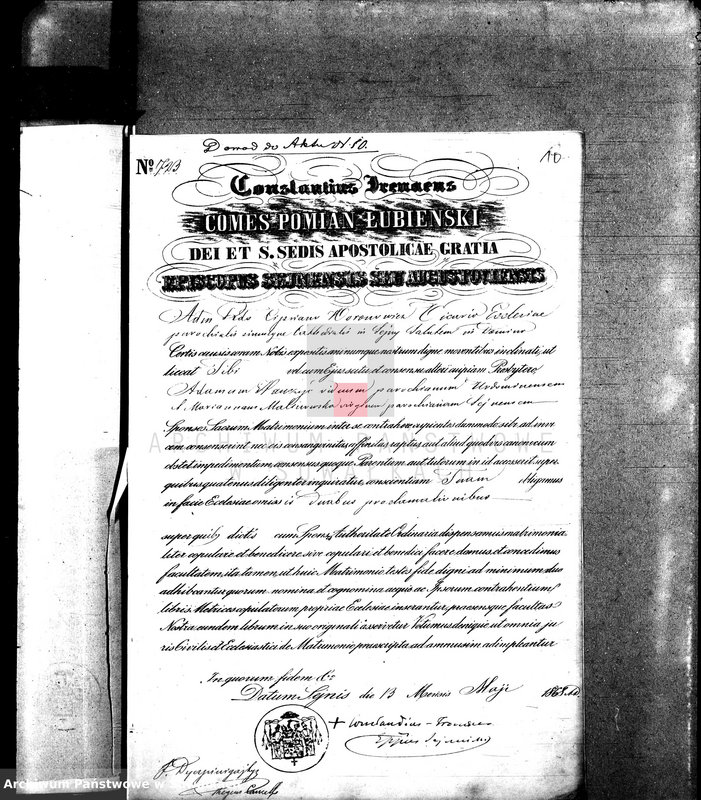 Dowod do Aktu N 50.
10
No. 723
Constantius Irenaeus
COMES POMIAN ŁUBIENSKI
DEI ET S. SEDIS APOSTOLICAE GRATIA
EPISCOPUS SEJNENSIS SEU AUGUSTOVIENSIS
Vicario Ecclesiae
parochialis simulque Cathedralis in Sejny Salutem in Domino
Certis causis coram Nobis expositis animumque nostrum digne moventibus inclinati, ut
liceat Tibi vel cum Ejus scitu et consensu alteri cuipiam Presbytero
Adamum viduum parochianum
et Mariannam virginem parochianam Sejnensem
Sponsos Sacrum Matrimonium inter se contrahere cupientes dummodo sibi ad invi
cem consenserint nec eis consanguinitas affinitas raptus aut aliud quodvis canonicum
obstet impedimentum consensus quoque Parentum aut tutorum in id accesserit super
quibus quatenus diligenter inquiratur, conscientiam Tuam obligamus
in facie Ecclesiae omissis duabus proclamationibus
super quibus dictis cum Spons. Authoritate Ordinaria dispensamus matrimonia
liter copulare et benedicere sive copulari et benedici facere damus et concedimus
facultatem, ita tamen, ut huic Matrimonio testes fide digni ad minimum duo
adhibeantur quorum nomina et cognomina aeque ac Ipsorum contrahentium
libris Metrices copulatorum propriae Ecclesiae inserantur, praesensque facultas
Nostra eundem librum in suo originali asservetur Volumus denique ut omnia ju
ris Civilis et Ecclesiastici de Matrimonio praescripta ad amussim adimpleantur
In quorum fidem &c:
Datum Sejnis die 13 Mensis Maji 1868.
Archiwum Państwowe w